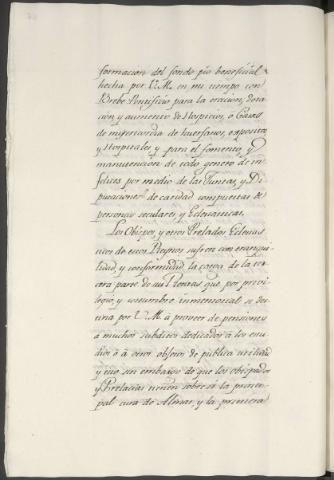 formacion del fondo pio beneficial
hecha por V. M. en mi tiempo con
Brebe Pontificio para la ereccion, dota
cion y aumento de Hospicios, o Casas
de misericordia de huerfanos, expositos
y Hospitales y para el fomento y
manutencion de todo genero de in
felices por medio de las Juntas, y Di
putaciones de caridad compuestas de
personas seculares y Eclesiasticas.
Los Obispos, y otros Prelados Eclesias
ticos de estos Reynos sufren con tranqui
lidad, y conformidad la carga de la ter
cera parte de sus Rentas que por privi
legio, y costumbre inmemorial se des
tina por V. M. à proveer de pensiones
à muchos subditos dedicados à los estu
dios ò à otros objetos de publica utilidad
y eso sin embargo de que los obispados
y Prelacias tienen sobre sí la princi
pal cura de Almas, y la primera